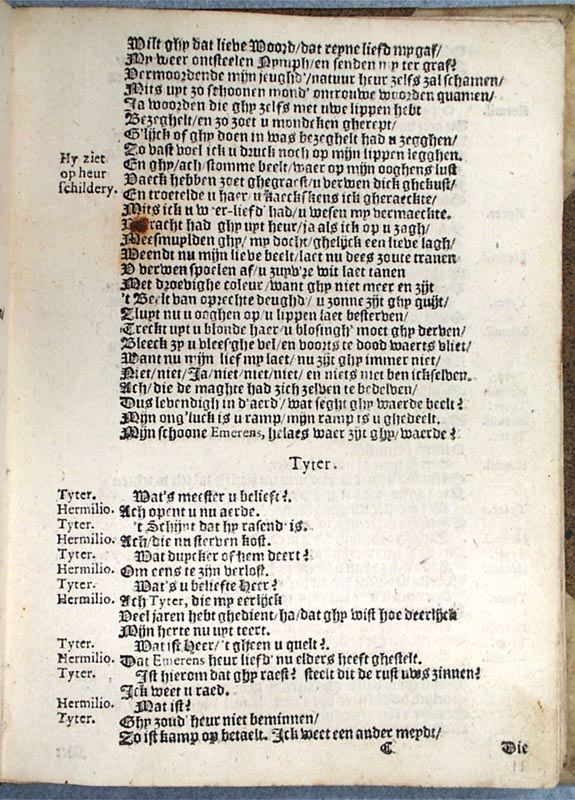 Wilt ghy dat lieve Woord/dat reyne liefd my gaf/
My weer ontsteelen Nymph/en senden my ter graf?
Vermoordende mijn jeughd'/natuur heur zelfs zal schamen/
Mits uyt zo schoonen mond' ontrouwe woorden quamen/
Ja woorden die ghy zelfs met uwe lippen hebt
Bezeghelt/en zo zoet u mondeken gherept/
G'lijck of ghy doen in was bezeghelt had u zegghen/
Zo vast voel ick u druck noch op mijn lippen legghen.
Hy ziet op heur schildery.
En ghy/ach stomme beelt/waer op mijn ooghens lust
Vaeck hebben zoet ghegraest/u verwen dick ghekust/
En troetelde u haer/u kaeckskens ick gheraeckte/
Mits ick u w'er-lief had/u wesen my vermaeckte.
racht had ghy uyt heur/ja als ick op u zagh/
Meesmuylden ghy/my docht/ghelijck een lieve lagh/
Weendt nu mijn lieve beelt/laet nu dees zoute tranen
U verwen spoelen af/u zuyv're wit laet tanen
Met droevighe coleur/want ghy niet meer en zijt
't Beelt van oprechte deughd'/u zonne zijt ghy quijt/
Sluyt nu u ooghen op/u lippen laet besterven/
Treckt uyt u blonde haer/u blosingh' moet ghy derven/
Bleeck zy u vleesghe vel/en voorts te dood waerts vliet/
Want nu mijn lief my laet/nu zijt ghy immer niet/
Niet/niet/Ja/niet/niet/niet/en niets niet ben ick selven.
Ach/die de maghte had zich zelven te bedelven/
Dus levendigh in d'aerd'/wat seght ghy waerde beelt?
Mijn ong'luck is u ramp/mijn ramp is u ghedeelt.
Mijn schoone Emerens, helaes waer zijt ghy/waerde?
Tyter.
Tyter. Wat's meester u belieft?
Hermilio. Ach opent u nu aerde.
Tyter. 't Schijnt dat hy rasend' is.
Hermilio. Ach/die nu sterven kost.
Tyter. Wat duycker of hem deert?
Hermilio. Om eens te zijn verlost.
Tyter. Wat's u beliefte Heer?
Hermilio. Ach Tyter, die my eerlijck
Veel jaren hebt ghedient/ha/dat ghy wist hoe deerlijck
Mijn herte nu uyt teert.
Tyter. Wat ist Heer/'t gheen u quelt?
Hermilio. Dat Emerens heur liefd' nu elders heeft ghestelt.
Tyter. Ist hierom dat ghy raest? steelt dit de rust uwes zinnen?
Ick weet u raed.
Hermilio. Wat ist?
Tyter. Ghy zoud' heur niet beminnen/
Zo ist kamp op betaelt. Ick weet een ander meydt/
C Die